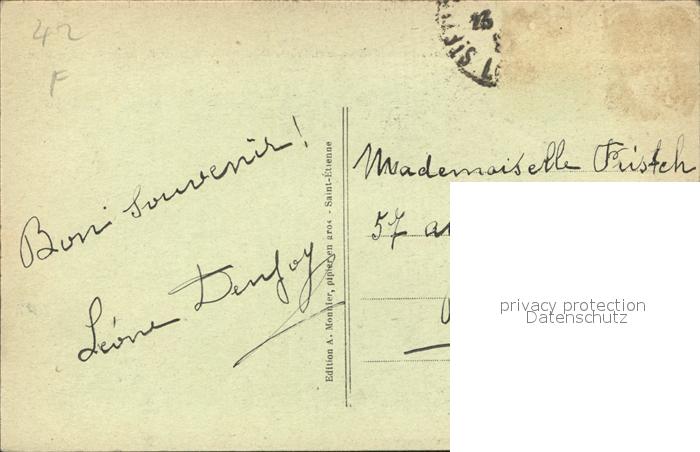 42
F
Bon souvenir !
Léone Denjoy
Edition A. Monnier, pipier en gros - Saint-Étienne
Mademoiselle Fristch
57 a
privacy protection
Datenschutz